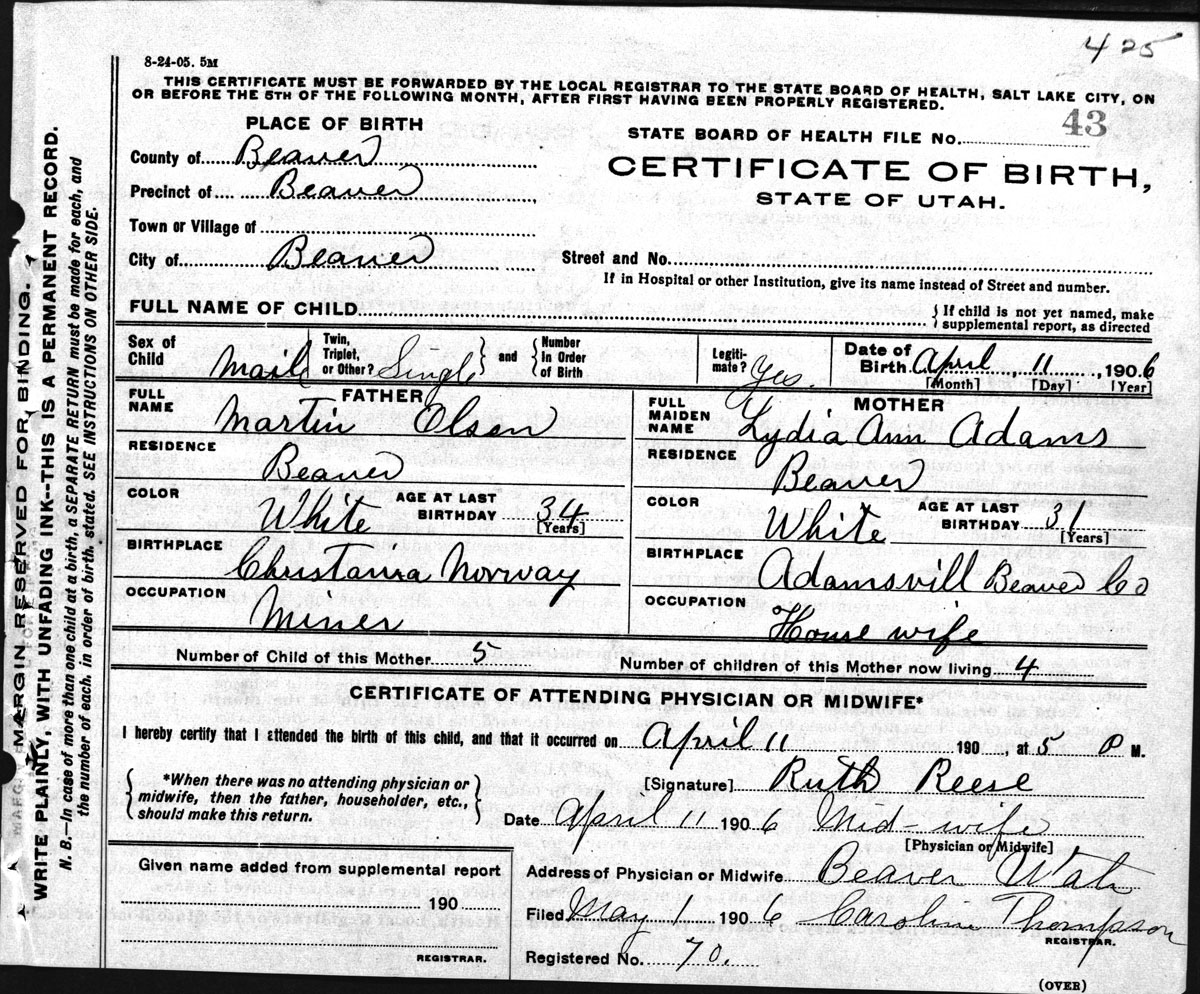 425
8-24-05. 5M
THIS CERTIFICATE MUST BE FORWARDED BY THE LOCAL REGISTRAR TO THE STATE BOARD OF HEALTH, SALT LAKE CITY, ON
OR BEFORE THE 5TH OF THE FOLLOWING MONTH, AFTER FIRST HAVING BEEN PROPERLY REGISTERED.
PLACE OF BIRTH
STATE BOARD OF HEALTH FILE No. 43
County of Beaver
CERTIFICATE OF BIRTH,
Precinct of Beaver
STATE OF UTAH.
Town or Village of
City of Beaver
Street and No.
If in Hospital or other Institution, give its name instead of Street and number.
FULL NAME OF CHILD
{ If child is not yet named, make
supplemental report, as directed
Sex of Child Mail
Twin, Triplet, or Other? Single } and { Number In Order of Birth
Legiti-mate? Yes.
Date of Birth April 11, 1906
[Month] [Day] [Year]
FATHER
FULL NAME Martin Olsen
MOTHER
FULL MAIDEN NAME Lydia Ann Adams
RESIDENCE Beaver
RESIDENCE Beaver
COLOR White AGE AT LAST BIRTHDAY 34 [Years]
COLOR White AGE AT LAST BIRTHDAY 31 [Years]
BIRTHPLACE Christania Norway
BIRTHPLACE Adamsvill Beaver Co
OCCUPATION Miner
OCCUPATION House wife
Number of Child of this Mother 5
Number of children of this Mother now living 4
CERTIFICATE OF ATTENDING PHYSICIAN OR MIDWIFE*
I hereby certify that I attended the birth of this child, and that it occurred on April 11 190, at 5 P M.
{ *When there was no attending physician or
midwife, then the father, householder, etc.,
should make this return. }
[Signature] Ruth Reese
Date April 11 1906 Mid-wife
[Physician or Midwife]
Given name added from supplemental report
190
REGISTRAR.
Address of Physician or Midwife Beaver Utah
Filed May 1 1906 Caroline Thompson
REGISTRAR.
Registered No. 70.
(OVER)
MARGIN RESERVED FOR BINDING.
WRITE PLAINLY, WITH UNFADING INK--THIS IS A PERMANENT RECORD.
N. B.—In case of more than one child at a birth, a SEPARATE RETURN must be made for each, and
the number of each, in order of birth, stated. SEE INSTRUCTIONS ON OTHER SIDE.